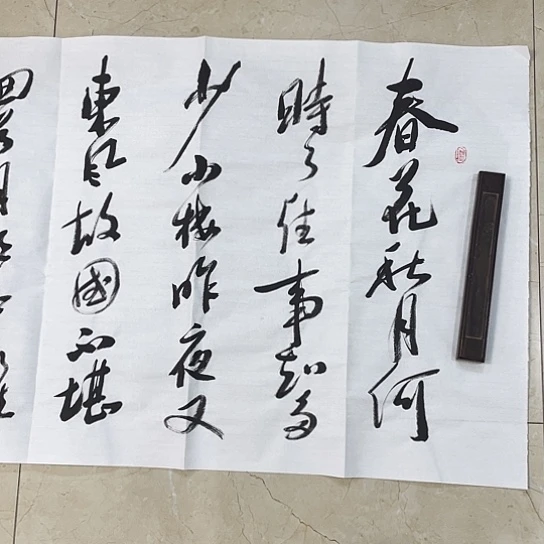 春花秋月何
時了往事知多
少小樓昨夜又
東風故國不堪
回首月